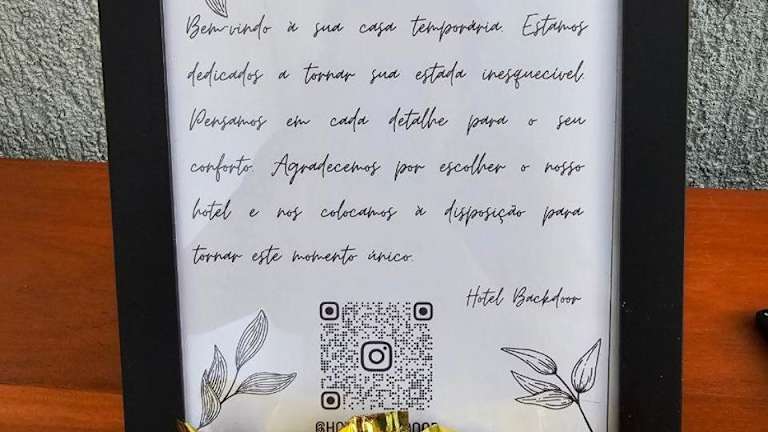 Bem-vindo à sua casa temporária. Estamos
dedicados a tornar sua estada inesquecível.
Pensamos em cada detalhe para o seu
conforto. Agradecemos por escolher o nosso
hotel e nos colocamos à disposição para
tornar este momento único.
Hotel Backdoor